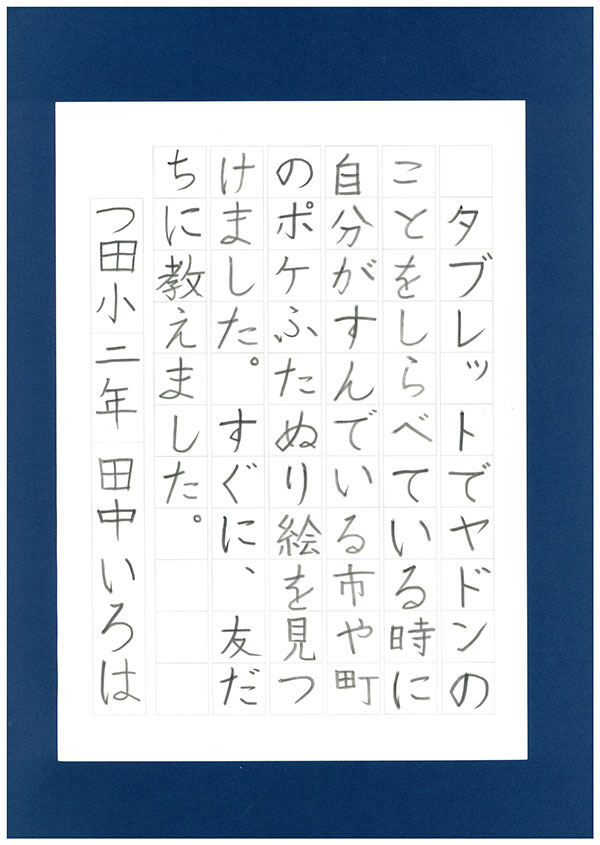 タブレットでヤドンの
ことをしらべている時に
自分がすんでいる市や町
のポケふたぬり絵を見つ
けました。すぐに、友だ
ちに教えました。
つ田小二年　田中いろは